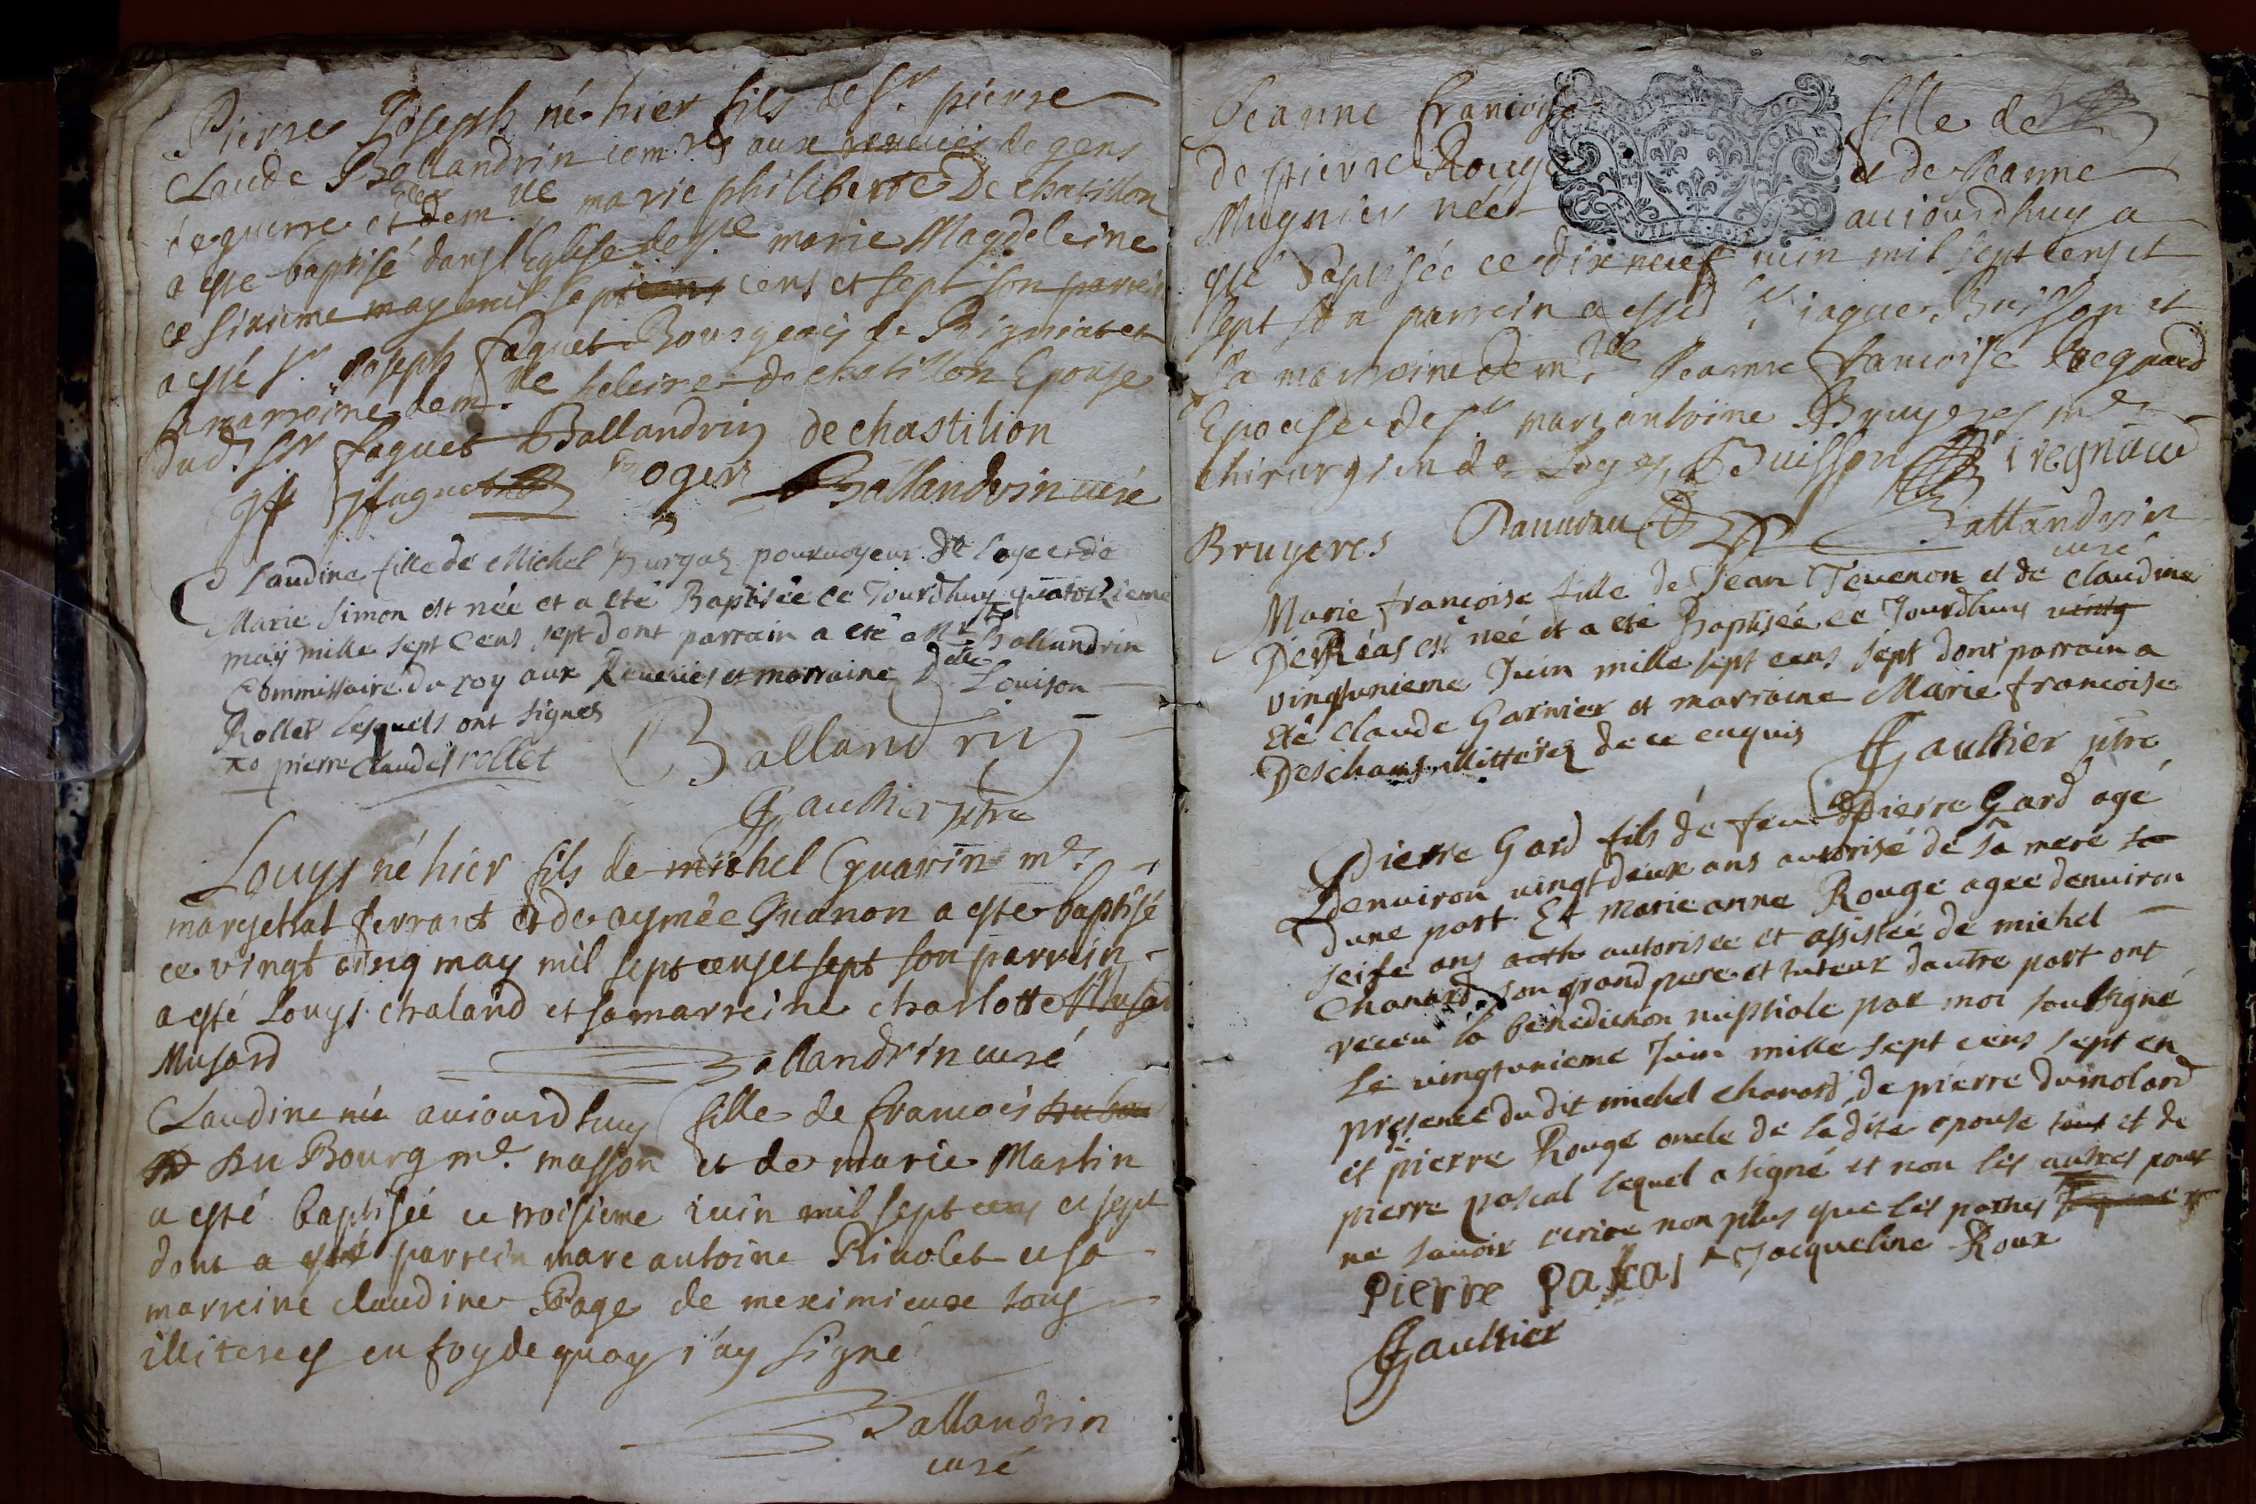 Pierre Joseph né hier fils de Sr. pierre
Claude Ballandrin com.re aux reveües de gens
de guerre et de dem.lle marie philiberte De chatillon
a este baptisé dans l'Eglise de Ste marie Magdeleine
ce sixieme may mil sept cens et sept son parrein
a esté Sr. Joseph faguet Bourgeois de Rignieu et
sa marreine dem.lle de chatillon Epouse
dud. Sr faguet Ballandrin de chastilion
faguet Roger Ballandrin curé
Claudine fille de Michel Burgas pouruoyeur de et de
Marie Simon est née et a eté Baptisée ce Jourdhuy quatorzieme
may mille sept cens sept dont parrain a eté Mr Ballandrin
Commissaire du roy aux Reveües et marraine Dlle Louison
Rollet Lesquels ont signes
pierre claude rollet Ballandrin
Gaultier ptre
Louys né hier fils de michel Guarin me.
mareschal ferrant et de aymée Guanon a este baptisé
ce vingt cinq may mil sept cens et sept son parrein
a esté Louys chaland et sa marreine charlotte Musard
Musard Ballandrin curé
Claudine née aujourdhuy fille de francois
Du Bourg me. masson et de marie Martin
a esté baptisée ce troisieme iuin mil sept cens et sept
dont a esté parrein marc antoine Riuolet et sa
marreine claudine Page de meximieux tous
illiteres en foy de quoy i'ay signé
Ballandrin
curé
Jeanne francoise fille de
de pierre Rouge et de Jeanne
Mugnier née aujourdhuy a
esté baptisée ce dix neuf iuin mil sept cens et
sept son parrein a esté Sr iaques Buisson et
sa marreine dem.lle Jeanne francoise Regnaud
Epouse de Sr. marc antoine Bruyeres me
chirurgien de Loyes Buisson i regnaud
Bruyeres Ballandrin
curé
Marie francoise fille de Jean Teuenon et de claudine
Desreas est née et a eté Baptisée ce Jourdhuy vingt
vingtunieme Juin mille sept cens sept dont parrain a
eté claude Garnier et marraine Marie francoise
Deschamps illitterez de ce enquis Gaultier ptre
Pierre Gard fils de feu Pierre Gard agé
denuiron vingt deux ans autorisé de sa mere
dune part Et Marie anne Rouge agee denuiron
seise ans auth autorisee et assistée de michel
chanard son grand pere et tuteur dautre part ont
receu la benediction nuptiale par moi soussigné
Le vingtunieme Juin mille sept cens sept en
presence dudit michel chanard, de pierre dumolard
et pierre Rouge oncle de ladite epouse tous et de
pierre pascal lequel a signé et non les autres pour
ne savoir ecrire non plus que les parties
Pierre Pascal + Jacqueline Roux
Gaultier